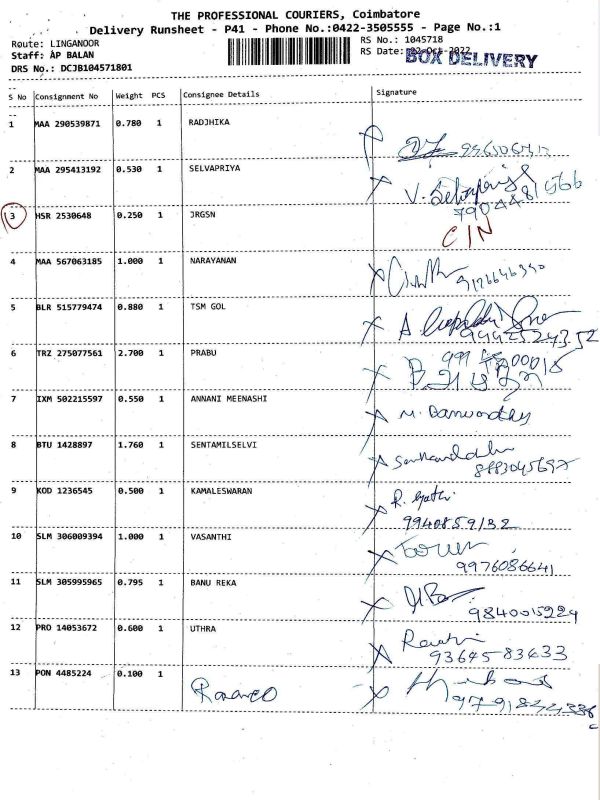 THE PROFESSIONAL COURIERS, Coimbatore
Delivery Runsheet - P41 - Phone No.:0422-3505555 - Page No.:1
Route: LINGANOOR
RS No.: 1045718
Staff: AP BALAN
RS Date: 22-Oct-2022
DRS No.: DCJB104571801
BOX DELIVERY
S No Consignment No Weight PCS Consignee Details Signature
1 MAA 290539871 0.780 1 RADJHIKA
2 MAA 295413192 0.530 1 SELVAPRIYA
V. Selvapriya
3 HSR 2530648 0.250 1 JRGSN
CIN
4 MAA 567063185 1.000 1 NARAYANAN
9176646340
5 BLR 515779474 0.880 1 TSM GOL
9442524352
6 TRZ 275077561 2.700 1 PRABU
7 IXM 502215597 0.550 1 ANNANI MEENASHI
8 BTU 1428897 1.760 1 SENTAMILSELVI
8883045697
9 KOD 1236545 0.500 1 KAMALESWARAN
9940859132
10 SLM 306009394 1.000 1 VASANTHI
9976086641
11 SLM 305995965 0.795 1 BANU REKA
9840015224
12 PRO 14053672 0.600 1 UTHRA
9364583633
13 PON 4485224 0.100 1